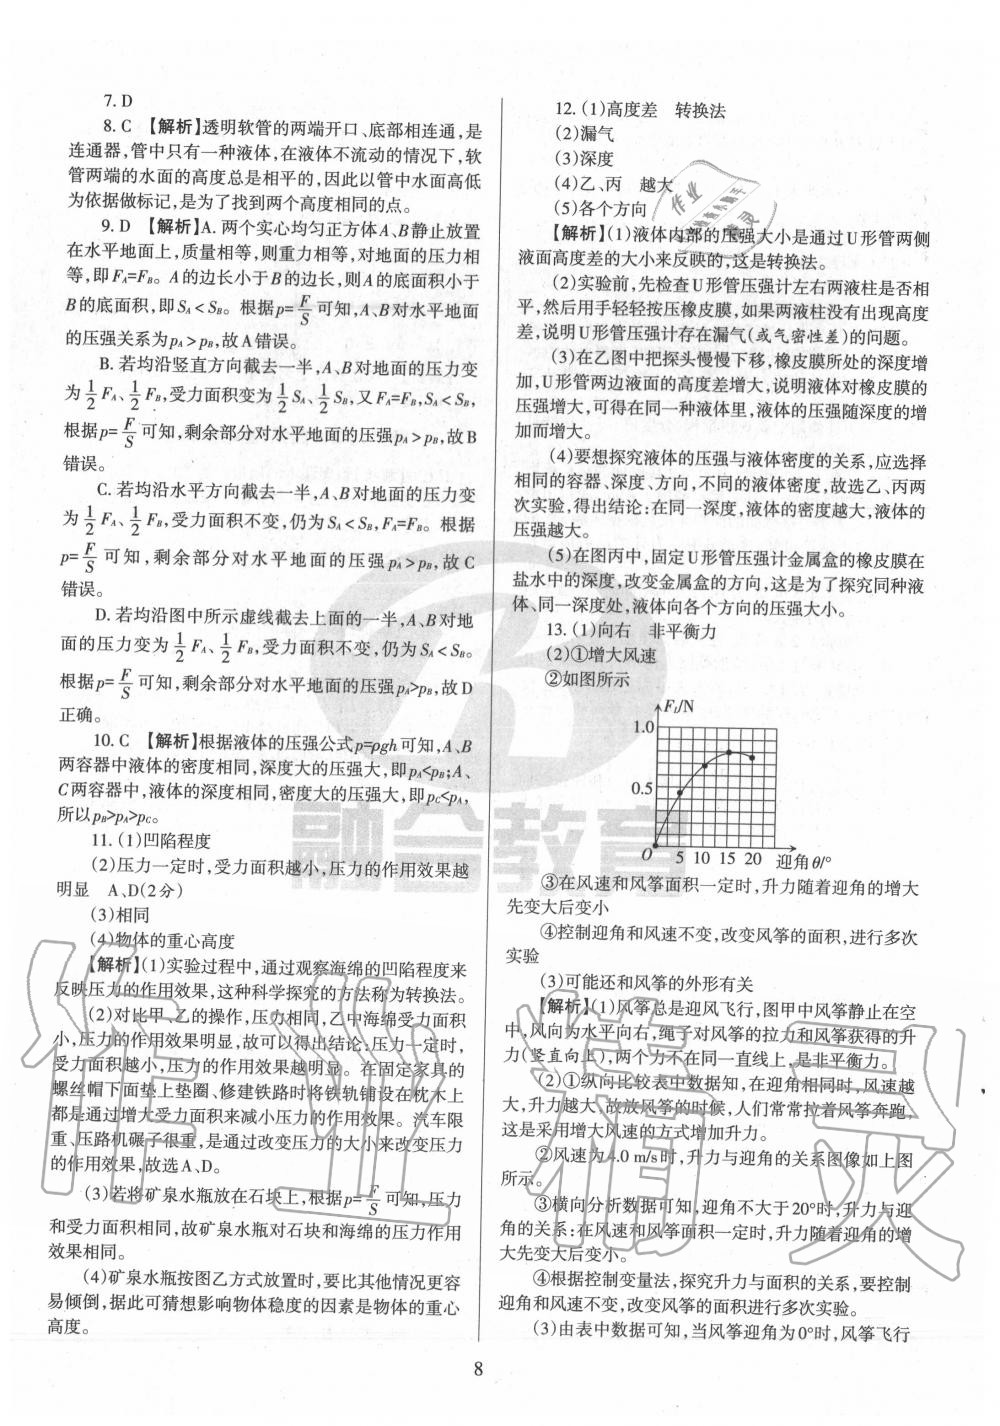 7. D
8. C 【解析】透明软管的两端开口、底部相连通,是
连通器,管中只有一种液体,在液体不流动的情况下,软
管两端的水面的高度总是相平的,因此以管中水面高低
为依据做标记,是为了找到两个高度相同的点。
9. D 【解析】A. 两个实心均匀正方体A、B静止放置
在水平地面上,质量相等,则重力相等,对地面的压力相
等,即F_A=F_B。A的边长小于B的边长,则A的底面积小于
B的底面积,即S_A<S_B。根据p=F/S可知,A、B对水平地面
的压强关系为p_A>p_B,故A错误。
B. 若均沿竖直方向截去一半,A、B对地面的压力变
为1/2 F_A、1/2 F_B,受力面积变为1/2 S_A、1/2 S_B,又F_A=F_B,S_A<S_B,
根据p=F/S可知,剩余部分对水平地面的压强p_A>p_B,故B
错误。
C. 若均沿水平方向截去一半,A、B对地面的压力变
为1/2 F_A、1/2 F_B,受力面积不变,仍为S_A<S_B,F_A=F_B。根据
p=F/S可知,剩余部分对水平地面的压强p_A>p_B,故C
错误。
D. 若均沿图中所示虚线截去上面的一半,A、B对地
面的压力变为1/2 F_A、1/2 F_B,受力面积不变,仍为S_A<S_B。
根据p=F/S可知,剩余部分对水平地面的压强p_A>p_B,故D
正确。
10. C 【解析】根据液体的压强公式p=ρgh可知,A、B
两容器中液体的密度相同,深度大的压强大,即p_A<p_B;A、
C两容器中,液体的深度相同,密度大的压强大,即p_C<p_A,
所以p_B>p_A>p_C。
11. (1)凹陷程度
(2)压力一定时,受力面积越小,压力的作用效果越
明显 A、D(2分)
(3)相同
(4)物体的重心高度
【解析】(1)实验过程中,通过观察海绵的凹陷程度来
反映压力的作用效果,这种科学探究的方法称为转换法。
(2)对比甲、乙的操作,压力相同,乙中海绵受力面积
小,压力的作用效果明显,故可以得出结论:压力一定时,
受力面积越小,压力的作用效果越明显。在固定家具的
螺丝帽下面垫上垫圈、修建铁路时将铁轨铺设在枕木上
都是通过增大受力面积来减小压力的作用效果。汽车限
重、压路机碾子很重,是通过改变压力的大小来改变压力
的作用效果,故选A、D。
(3)若将矿泉水瓶放在石块上,根据p=F/S可知,压力
和受力面积相同,故矿泉水瓶对石块和海绵的压力作用
效果相同。
(4)矿泉水瓶按图乙方式放置时,要比其他情况更容
易倾倒,据此可猜想影响物体稳度的因素是物体的重心
高度。
12. (1)高度差 转换法
(2)漏气
(3)深度
(4)乙、丙 越大
(5)各个方向
【解析】(1)液体内部的压强大小是通过U形管两侧
液面高度差的大小来反映的,这是转换法。
(2)实验前,先检查U形管压强计左右两液柱是否相
平,然后用手轻轻按压橡皮膜,如果两液柱没有出现高度
差,说明U形管压强计存在漏气(或气密性差)的问题。
(3)在乙图中把探头慢慢下移,橡皮膜所处的深度增
加,U形管两边液面的高度差增大,说明液体对橡皮膜的
压强增大,可得在同一种液体里,液体的压强随深度的增
加而增大。
(4)要想探究液体的压强与液体密度的关系,应选择
相同的容器、深度、方向,不同的液体密度,故选乙、丙两
次实验,得出结论:在同一深度,液体的密度越大,液体的
压强越大。
(5)在图丙中,固定U形管压强计金属盒的橡皮膜在
盐水中的深度,改变金属盒的方向,这是为了探究同种液
体、同一深度处,液体向各个方向的压强大小。
13. (1)向右 非平衡力
(2)①增大风速
②如图所示
F_L/N
1.0
0.5
O 5 10 15 20 迎角θ/°
③在风速和风筝面积一定时,升力随着迎角的增大
先变大后变小
④控制迎角和风速不变,改变风筝的面积,进行多次
实验
(3)可能还和风筝的外形有关
【解析】(1)风筝总是迎风飞行,图甲中风筝静止在空
中,风向为水平向右,绳子对风筝的拉力和风筝获得的升
力(竖直向上),两个力不在同一直线上,是非平衡力。
(2)①纵向比较表中数据知,在迎角相同时,风速越
大,升力越大,故放风筝的时候,人们常常拉着风筝奔跑,
这是采用增大风速的方式增加升力。
②风速为4.0 m/s时,升力与迎角的关系图像如上图
所示。
③横向分析数据可知,迎角不大于20°时,升力与迎
角的关系:在风速和风筝面积一定时,升力随着迎角的增
大先变大后变小。
④根据控制变量法,探究升力与面积的关系,要控制
迎角和风速不变,改变风筝的面积进行多次实验。
(3)由表中数据可知,当风筝迎角为0°时,风筝飞行
8
融合教育
作业精灵